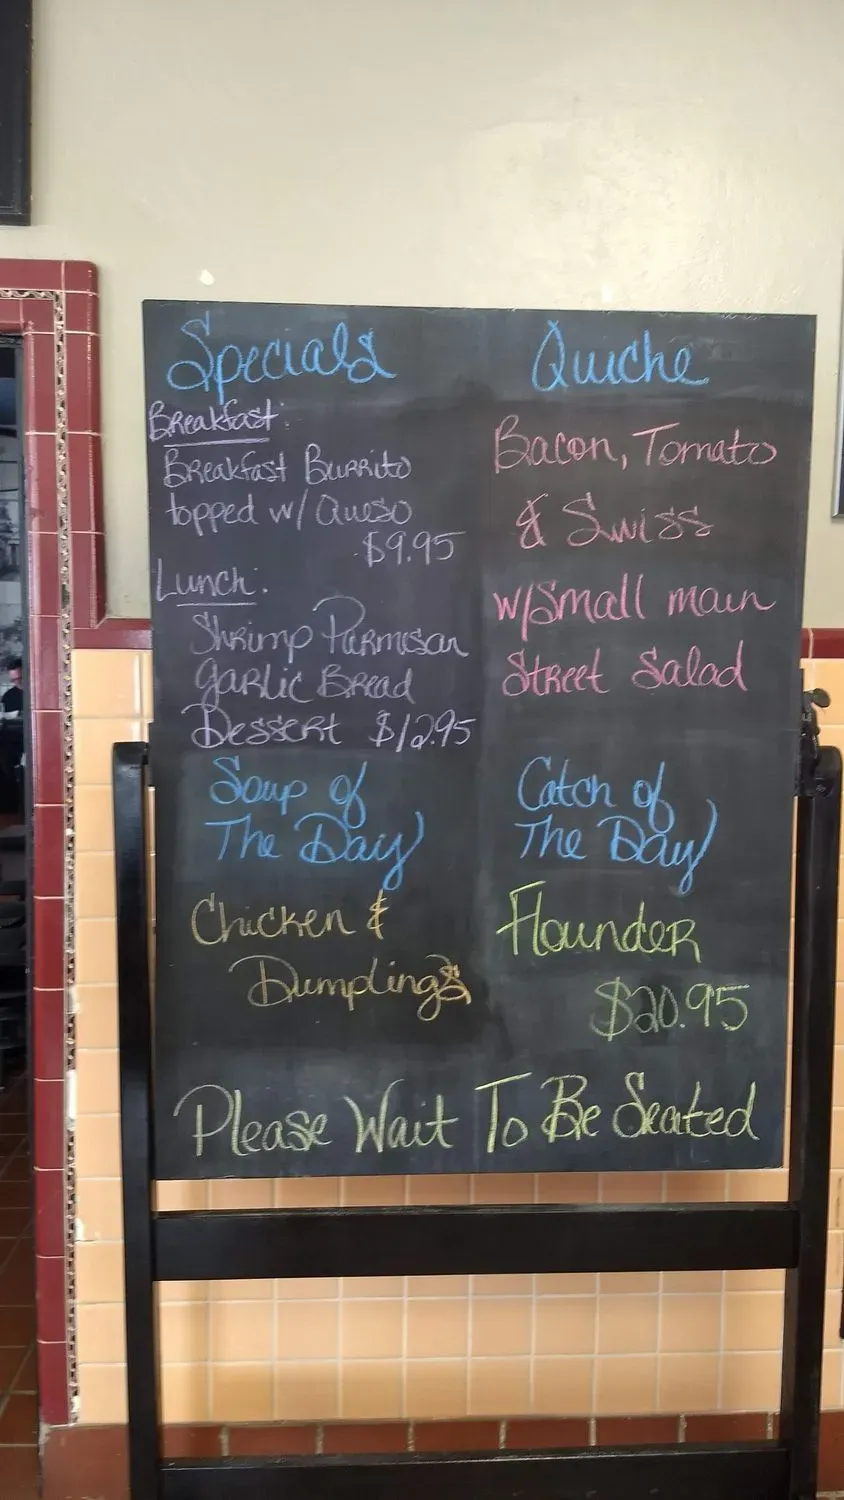 Specials
Breakfast:
Breakfast Burrito
topped w/ Queso
$9.95
Lunch:
Shrimp Parmesan
Garlic Bread
Dessert $12.95
Soup of
The Day
Chicken &
Dumplings
Quiche
Bacon, Tomato
& Swiss
w/Small main
Street Salad
Catch of
The Day
Flounder
$20.95
Please Wait To Be Seated